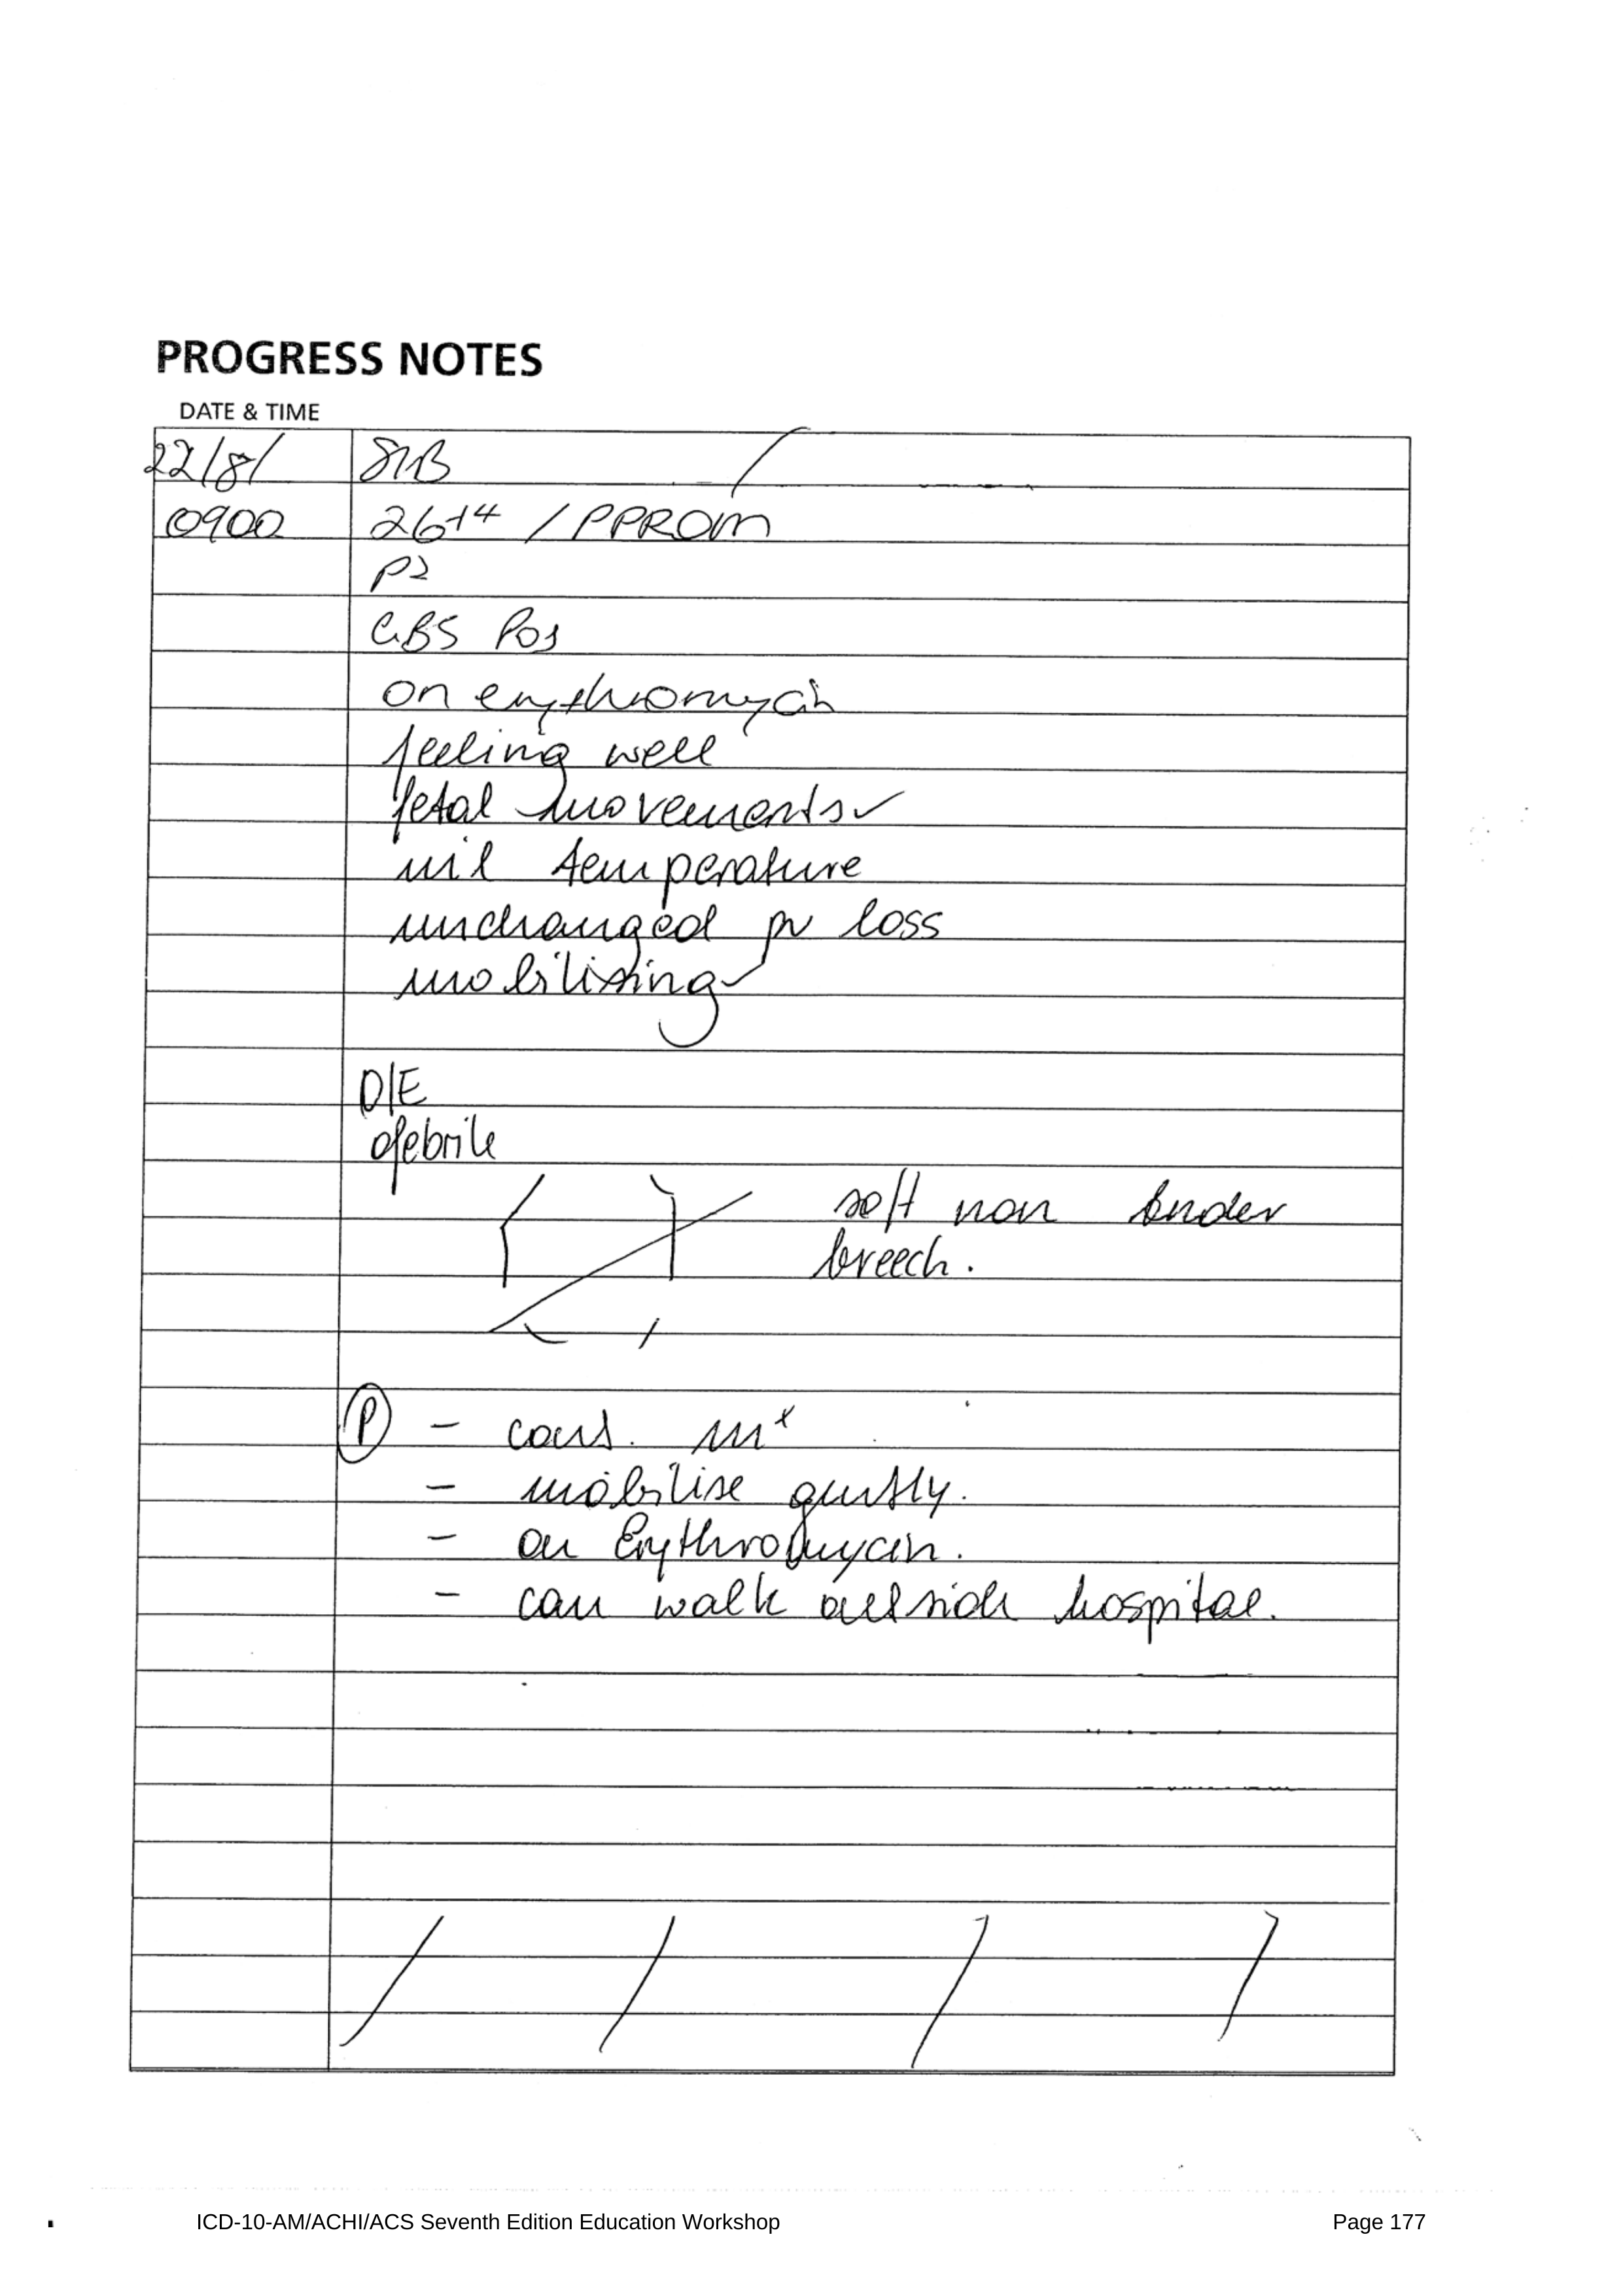 PROGRESS NOTES
DATE & TIME
22/8/ S/B /
0900 26+4 / PPROM
P2
GBS Pos
on erythromycin
feeling well
fetal movements ✓
nil temperature
unchanged pv loss
mobilising ✓
O/E
afebrile
soft non tender
breech.
(P) - cons. mx
- mobilise gently.
- on Erythromycin.
- can walk outside hospital.
ICD-10-AM/ACHI/ACS Seventh Edition Education Workshop Page 177